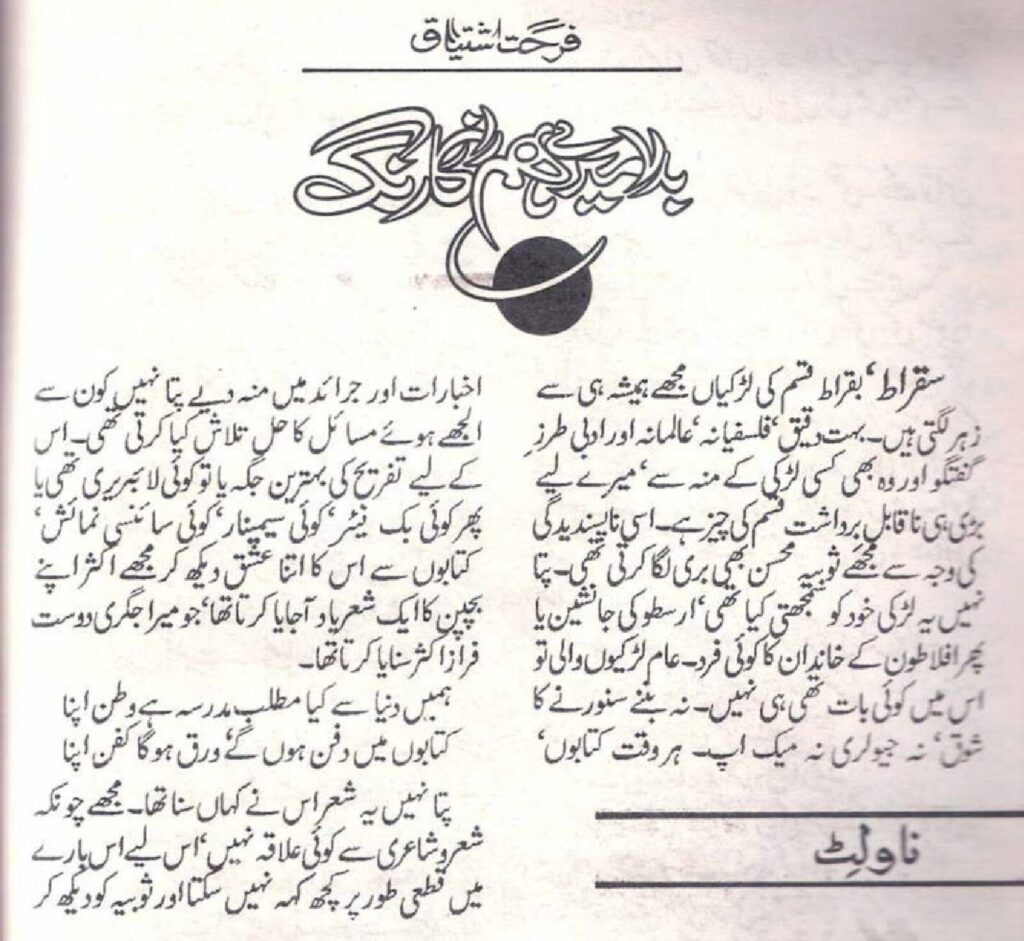 فرحت اشتیاق
بدلا میرے ہمراز کا رنگ
سقراط‘ بقراط قسم کی لڑکیاں مجھے ہمیشہ ہی سے
زہر لگتی ہیں۔ بہت دقیق‘ فلسفیانہ‘ عالمانہ اور ادبی طرزِ
گفتگو اور وہ بھی کسی لڑکی کے منہ سے‘ میرے لیے
بڑی ہی ناقابل برداشت قسم کی چیز ہے۔ اسی ناپسندیدگی
کی وجہ سے مجھے ثوبیہ محسن بھی بری لگا کرتی تھی۔ پتا
نہیں یہ لڑکی خود کو سمجھتی کیا تھی‘ ارسطو کی جانشین یا
پھر افلاطون کے خاندان کا کوئی فرد۔ عام لڑکیوں والی تو
اس میں کوئی بات تھی ہی نہیں۔ نہ بننے سنورنے کا
شوق‘ نہ جیولری نہ میک اپ۔ ہر وقت کتابوں‘
ناولٹ
اخبارات اور جرائد میں منہ دیے پتا نہیں کون سے
الجھے ہوئے مسائل کا حل تلاش کیا کرتی تھی۔ اس
کے لیے تفریح کی بہترین جگہ یا تو کوئی لائبریری تھی یا
پھر کوئی بک فیئر‘ کوئی سیمینار‘ کوئی سائنسی نمائش‘
کتابوں سے اس کا اتنا عشق دیکھ کر مجھے اکثر اپنے
بچپن کا ایک شعر یاد آجایا کرتا تھا‘ جو میرا جگری دوست
فراز اکثر سنایا کرتا تھا۔
ہمیں دنیا سے کیا مطلب مدرسہ ہے وطن اپنا
کتابوں میں دفن ہوں گے‘ ورق ہوگا کفن اپنا
پتا نہیں یہ شعر اس نے کہاں سنا تھا۔ مجھے چونکہ
شعر و شاعری سے کوئی علاقہ نہیں‘ اس لیے اس بارے
میں قطعی طور پر کچھ کہہ نہیں سکتا اور ثوبیہ کو دیکھ کر